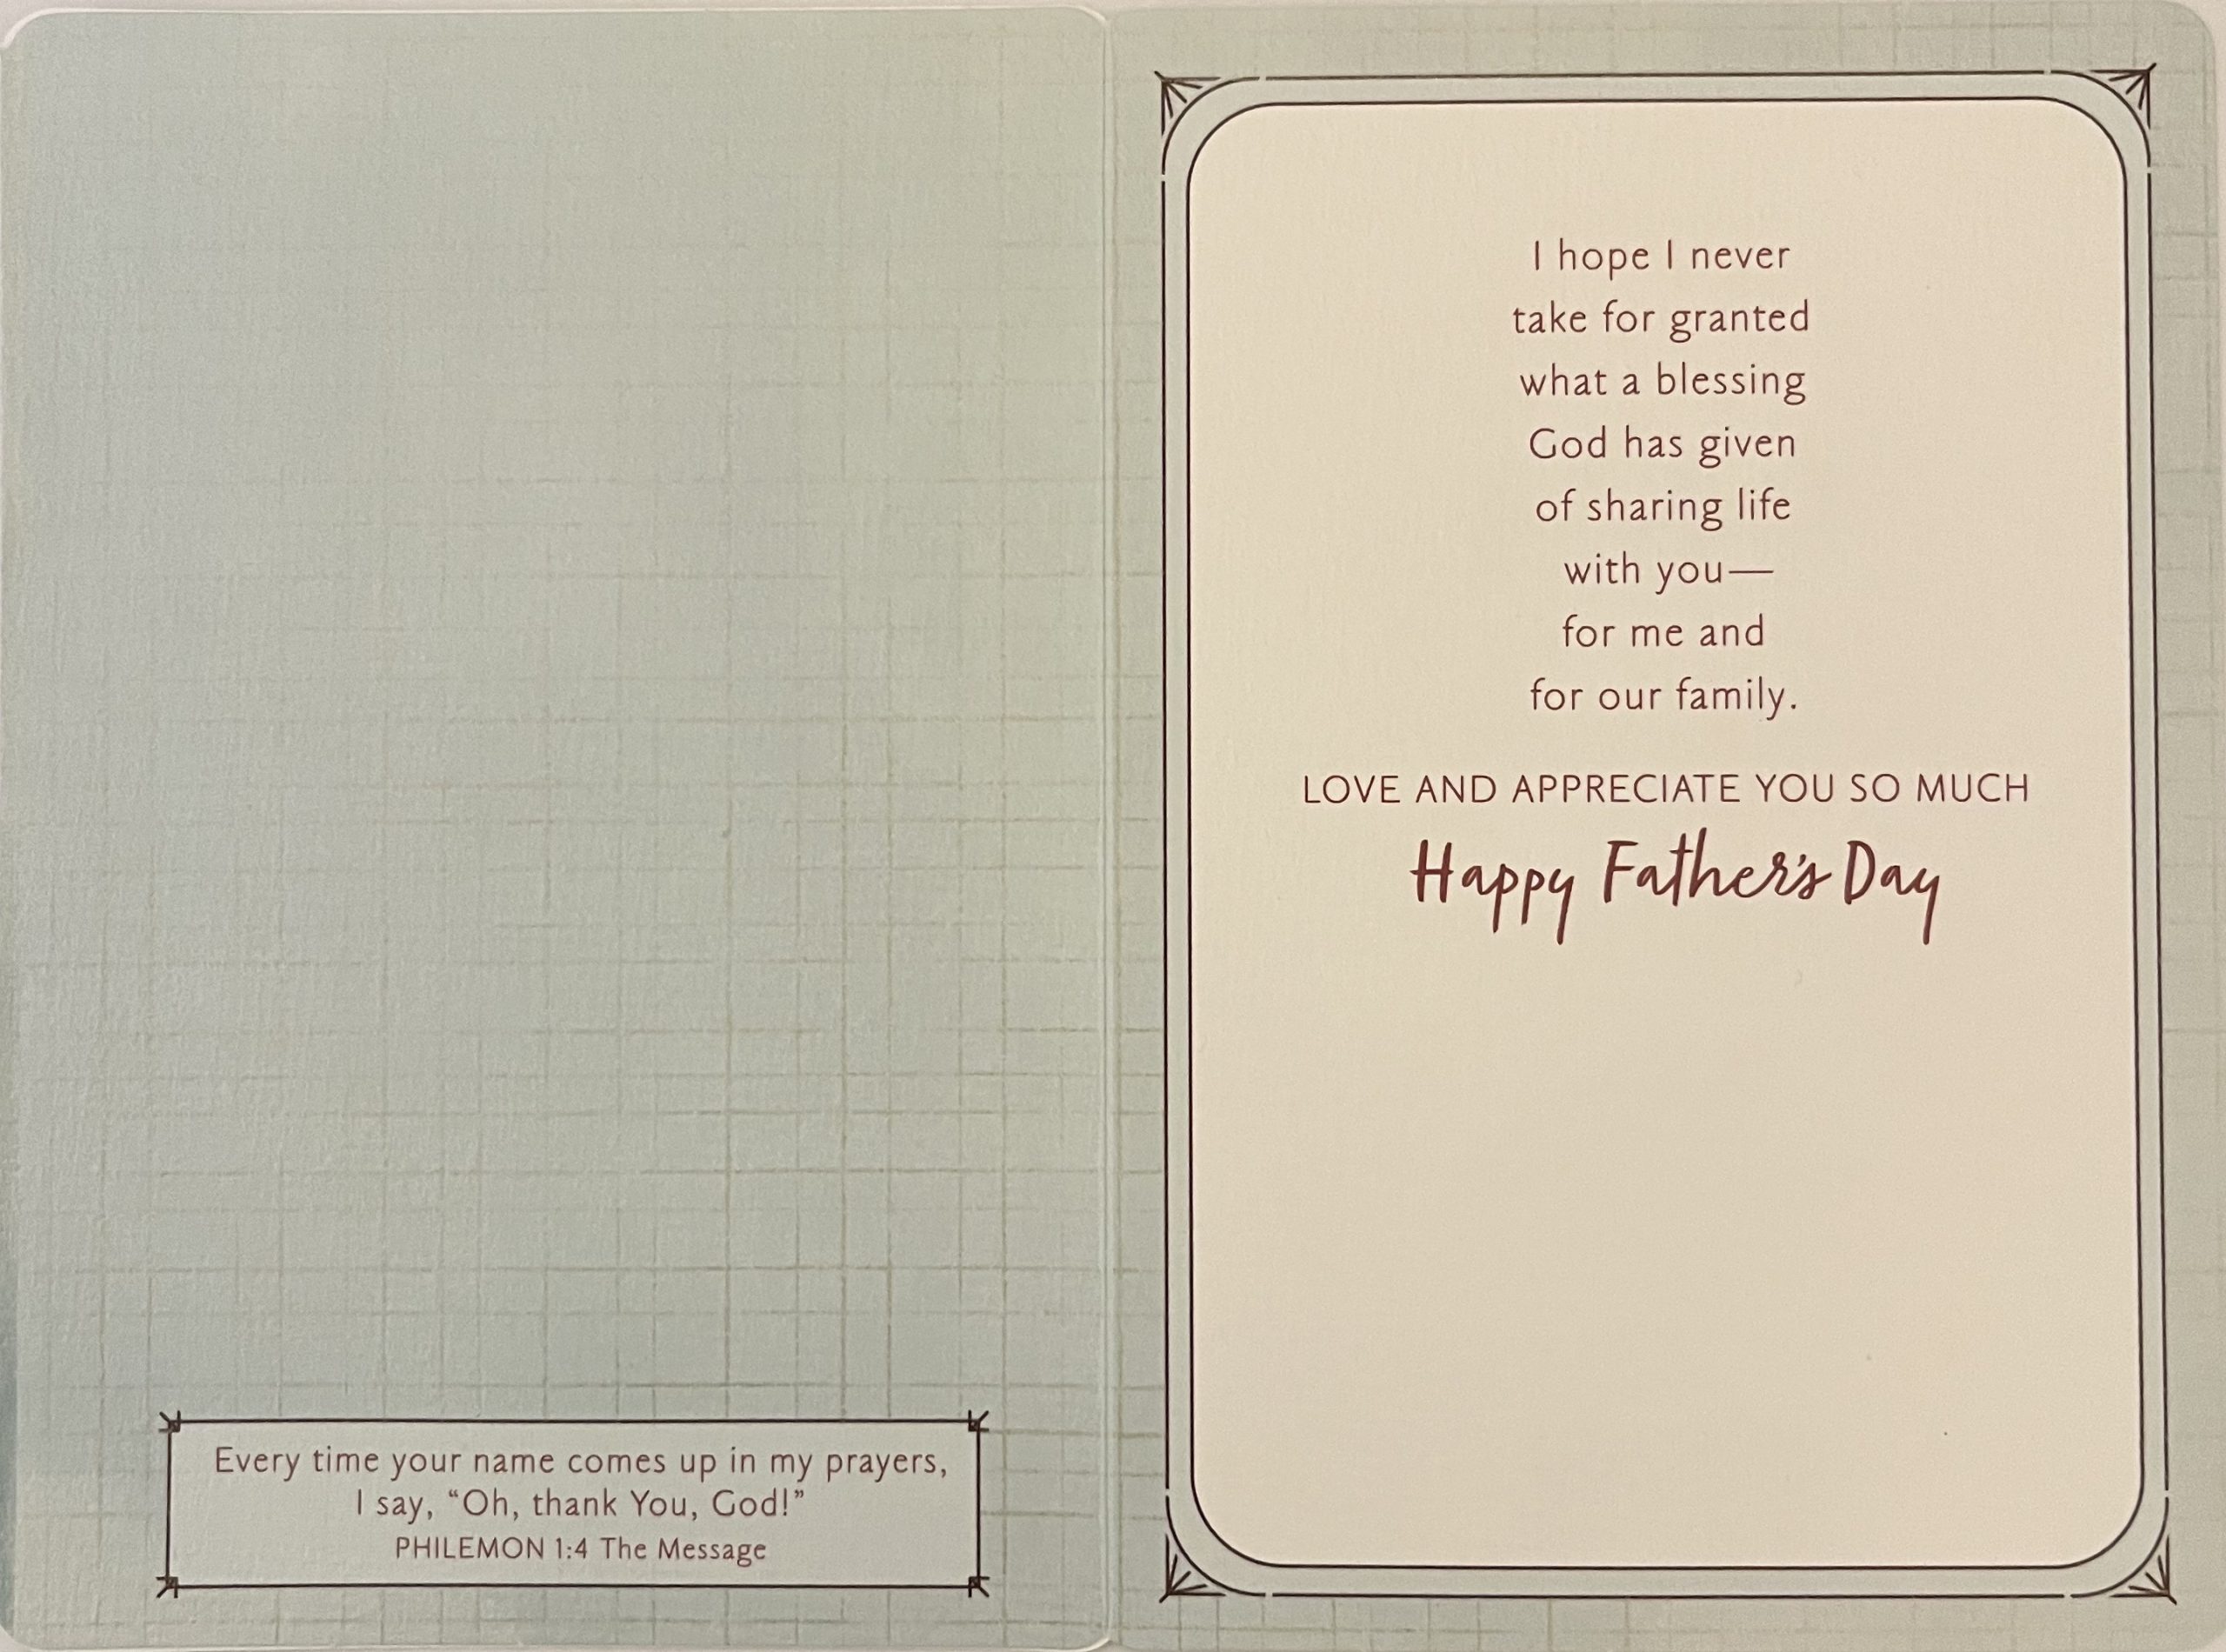 Every time your name comes up in my prayers,
I say, “Oh, thank You, God!”
PHILEMON 1:4 The Message
I hope I never
take for granted
what a blessing
God has given
of sharing life
with you—
for me and
for our family.
LOVE AND APPRECIATE YOU SO MUCH
Happy Father's Day